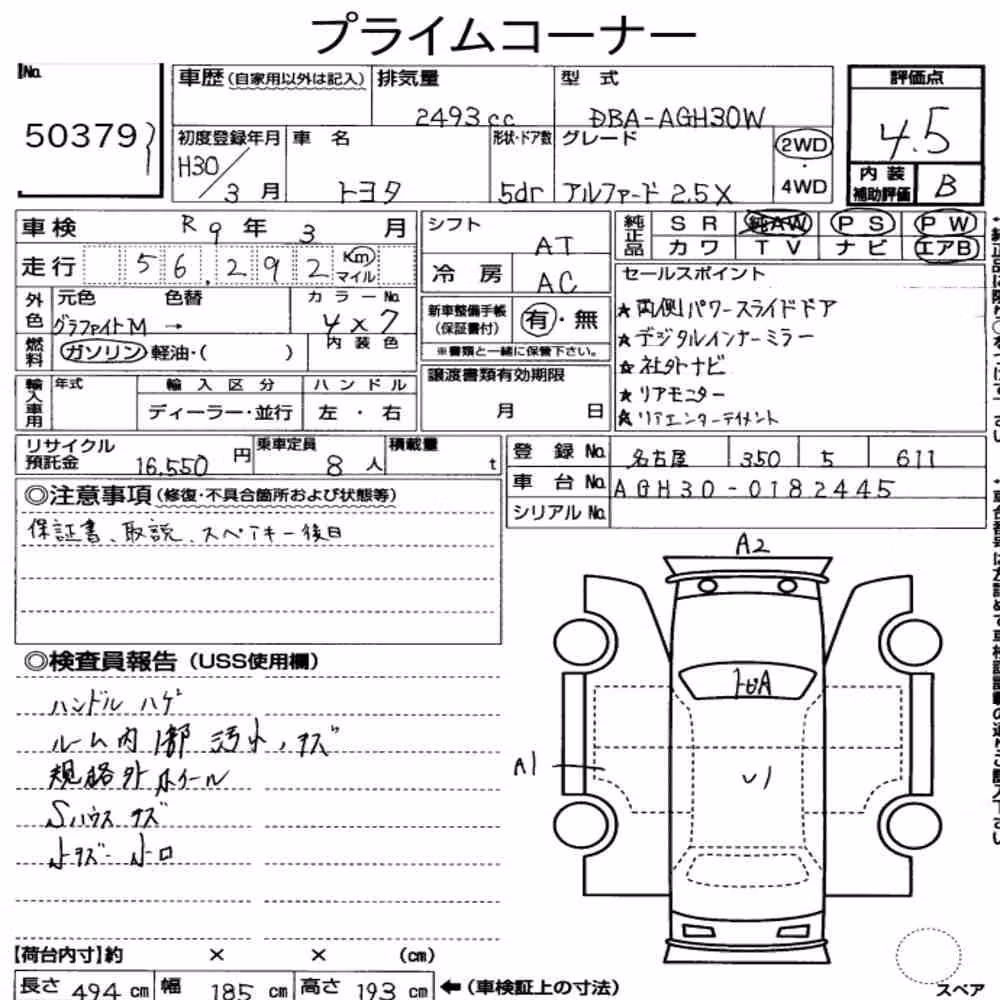 プライムコーナー
No.
50379
車歴(自家用以外は記入)
排気量
2493cc
型式
DBA-AGH30W
評価点
4.5
初度登録年月
H30/3月
車名
トヨタ
形状・ドア数
5dr
グレード
アルファード 2.5X
2WD
・
4WD
内装補助評価
B
車検
R9年3月
シフト
AT
純正品
SR 純AW PS PW
カワ TV ナビ エアB
走行
56,292
Km
マイル
冷房
AC
セールスポイント
★両側パワースライドドア
★デジタルインナーミラー
★社外ナビ
★リアモニター
★リアエンターテイメント
外色
元色 色替
グラファイトM →
カラーNo.
4x7
新車整備手帳
(保証書付)
有・無
※書類と一緒に保管下さい。
燃料
ガソリン・軽油・( )
内装色
譲渡書類有効期限
月 日
輸入車用
年式
輸入区分
ディーラー・並行
ハンドル
左・右
リサイクル
預託金
16,550円
乗車定員
8人
積載量
t
登録No.
名古屋 350 5 611
車台No.
AGH30-0182445
シリアルNo.
◎注意事項(修復・不具合箇所および状態等)
保証書、取説、スペアキー後日
◎検査員報告(USS使用欄)
ハンドル ハゲ
ルーム内1部 汚れ、キズ
規格外ホイール
Sハウス キズ
小キズ 小凹
A2
A1
U1
【荷台内寸】約 × × (cm)
長さ 494 cm
幅 185 cm
高さ 193 cm
←(車検証上の寸法)
スペア